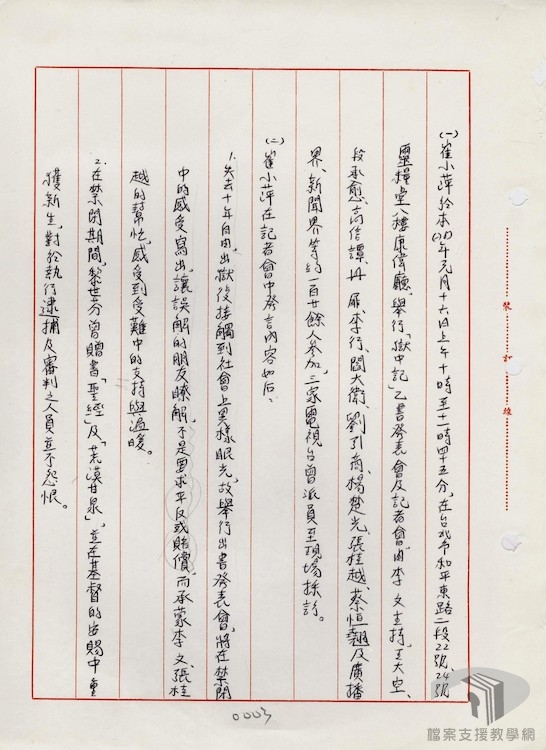 (一)崔小萍於本(78)年元月十六日上午十時至十二時四十五分,在台北市和平東路二段22號、24號
靈糧堂八樓康偉廳,舉行「獄中記」乙書發表會及記者會,由李文主持,王大空、
段承愈、高信譚、丹扉、李行、閻大衛、劉引商、楊楚光、張桂越、蔡恒翹及廣播
界、新聞界等約一百廿餘人參加,三家電視台曾派員至現場採訪。
(二)崔小萍在記者會中發言內容如后、
1.失去十年自由,出獄後接觸到社會上異樣眼光,故舉行出書發表會,將在禁閉
中的感受寫出,讓誤解的朋友瞭解,不是要求平反或賠償,而承蒙李文、張桂
越的幫忙,感受到受難中的支持與溫暖。
2.在禁閉期間,黎世芬曾贈書「聖經」及「荒漠甘泉」,並在基督的安賜中重
獲新生,對於執行逮捕及審判之人員並不怨恨。
0003
檔案支援教學網